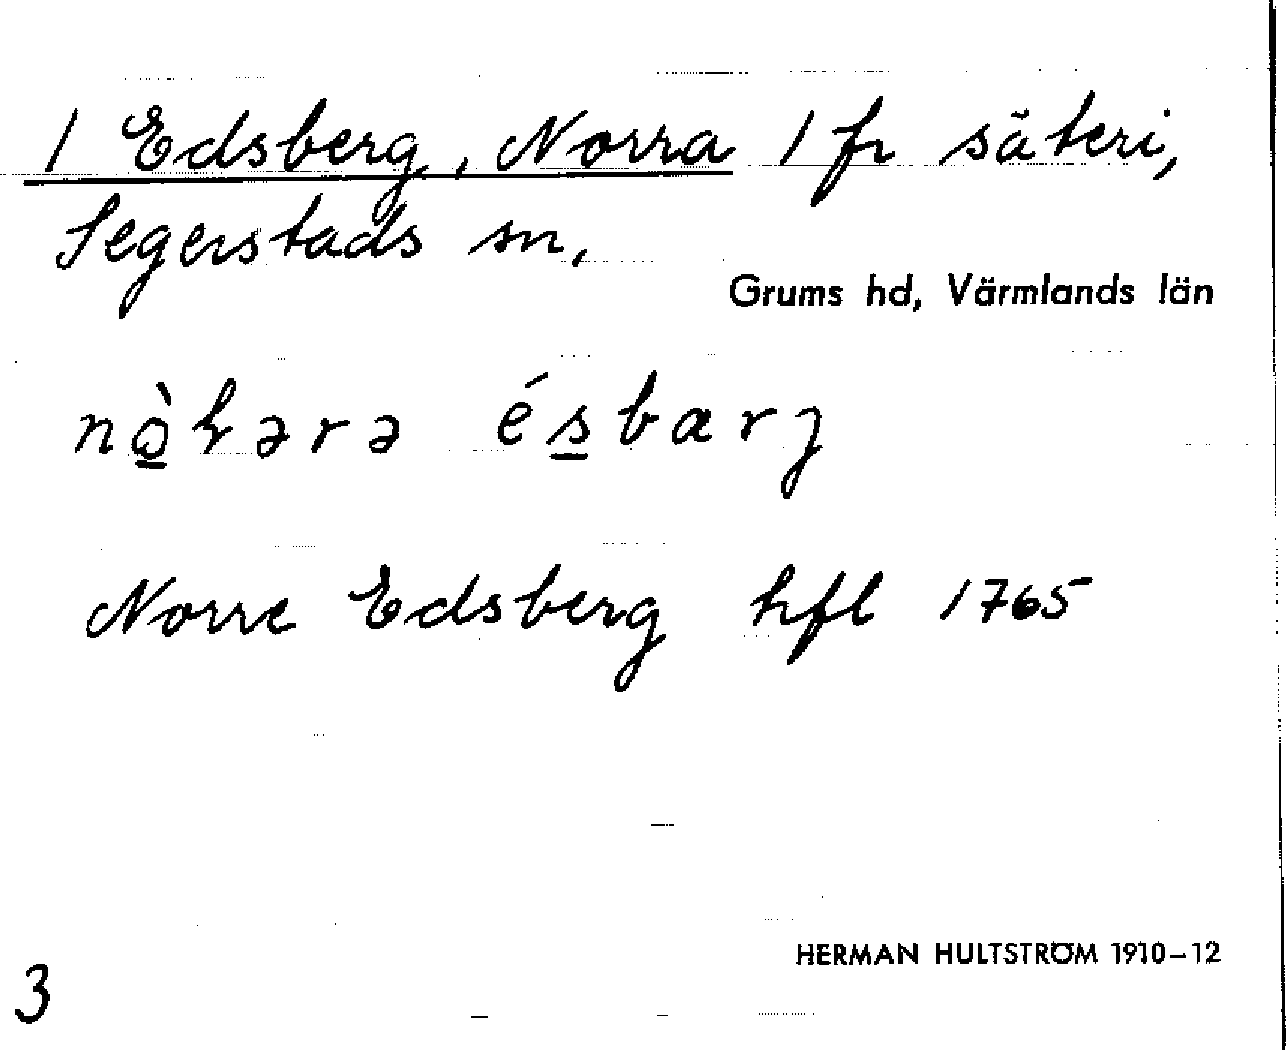 1 Edsberg, Norra 1 fr säteri,
Segerstads sn,
Grums hd, Värmlands län
ésbærj
Norre Edsberg hfl 1765
HERMAN HULTSTRÖM 1910–12
3